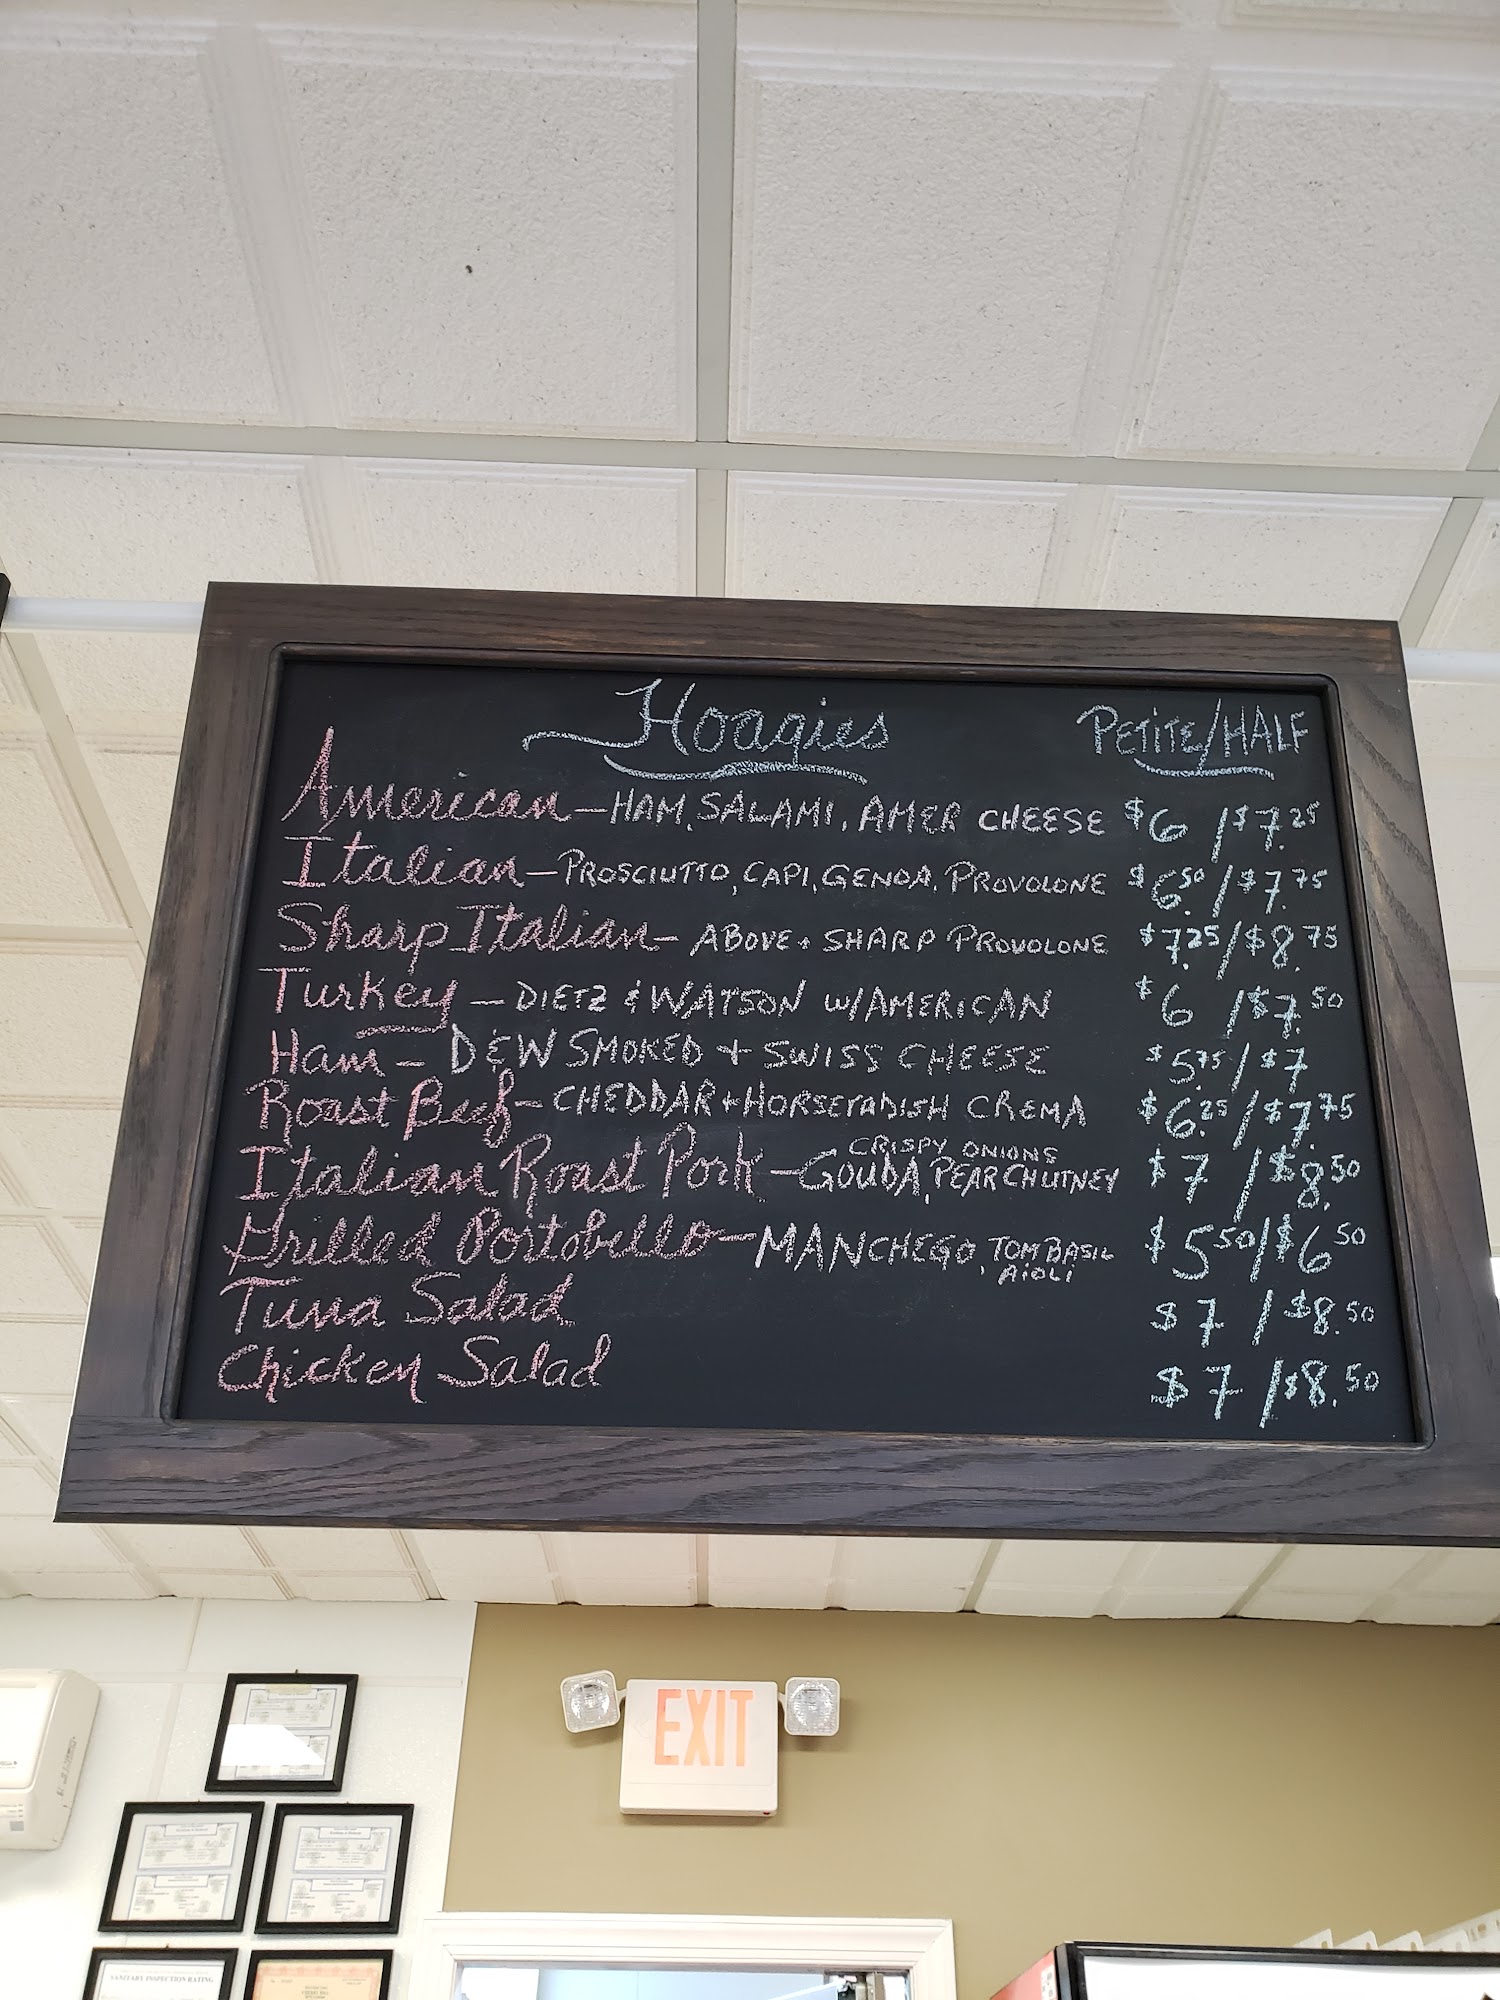 Hoagies PETITE/HALF
American - HAM, SALAMI, AMER CHEESE $6 / $7.25
Italian - PROSCIUTTO, CAPI, GENOA, PROVOLONE $6.50 / $7.75
Sharp Italian - ABOVE + SHARP PROVOLONE $7.25 / $8.75
Turkey - DIETZ & WATSON W/AMERICAN $6 / $7.50
Ham - D&W SMOKED + SWISS CHEESE $5.75 / $7
Roast Beef - CHEDDAR + HORSERADISH CREMA $6.25 / $7.75
CRISPY ONIONS
Italian Roast Pork - GOUDA, PEAR CHUTNEY $7 / $8.50
Grilled Portobello - MANCHEGO, TOM BASIL $5.50 / $6.50
AIOLI
Tuna Salad $7 / $8.50
Chicken Salad $7 / $8.50
EXIT
SANITARY INSPECTION RATING